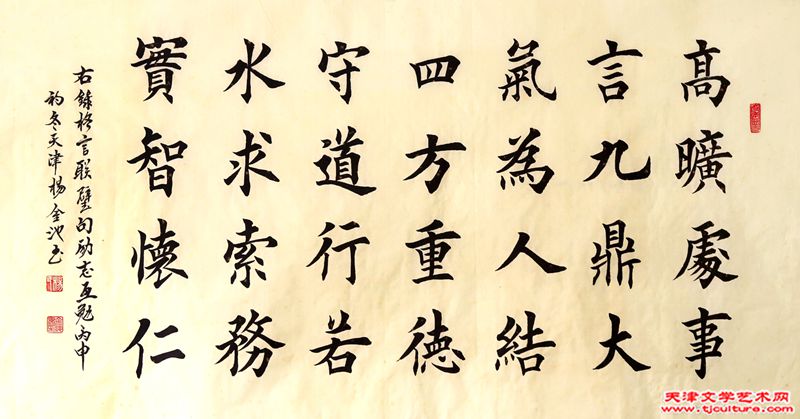 高曠處事
言九鼎大
氣為人結
四方重德
守道行若
水求索務
實智懷仁
右錄格言聯璧句勵志互勉丙申
初冬天津楊金池書
天津文学艺术网
www.tjculture.com